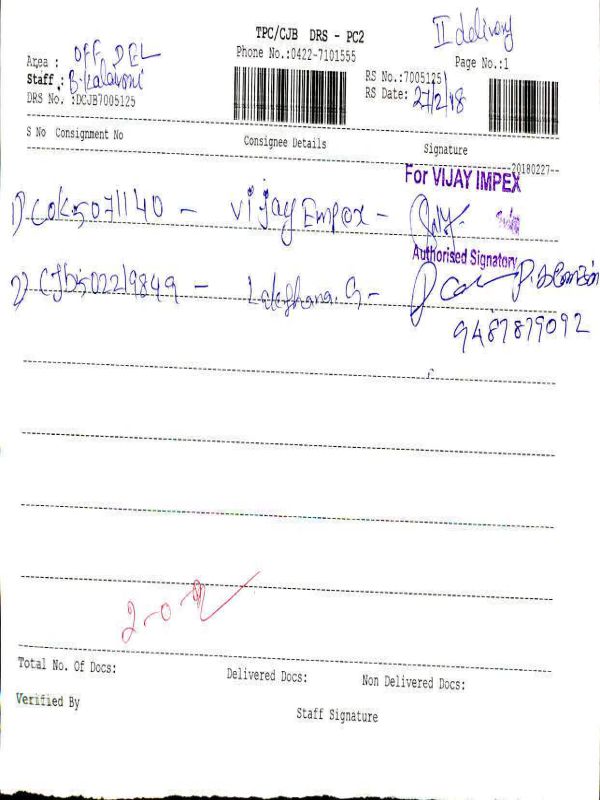 TPC/CJB DRS - PC2
II delivery
Area : OFF DEL
Phone No.:0422-7101555
Page No.:1
Staff : B. Kalavani
RS No.:7005125
DRS No. :DCJB7005125
RS Date: 27/2/18
S No Consignment No
Consignee Details
Signature
20180227--
For VIJAY IMPEX
1) COK5071140 - Vijay Empex -
Authorised Signatory
2) CJB502219849 - Lakshana. G -
9487879092
2-0-2
Total No. Of Docs:
Delivered Docs:
Non Delivered Docs:
Verified By
Staff Signature